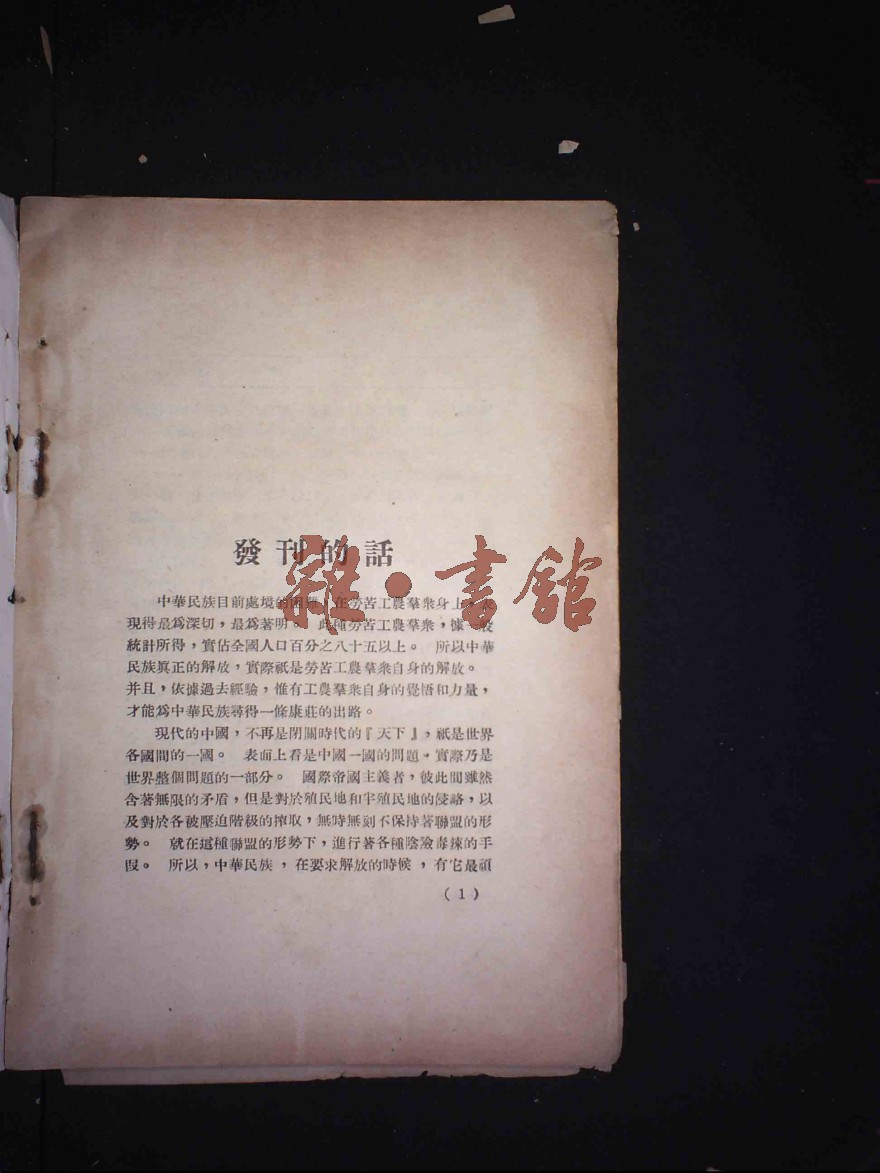 發刊的話
雜·書館
中華民族目前處境的困難，在勞苦工農羣衆身上，表
現得最爲深切，最爲著明。 此種勞苦工農羣衆，據一般
統計所得，實佔全國人口百分之八十五以上。 所以中華
民族眞正的解放，實際祇是勞苦工農羣衆自身的解放。
并且，依據過去經驗，惟有工農羣衆自身的覺悟和力量，
才能爲中華民族尋得一條康莊的出路。
現代的中國，不再是閉關時代的『天下』，祇是世界
各國間的一國。 表面上看是中國一國的問題，實際乃是
世界整個問題的一部分。 國際帝國主義者，彼此間雖然
含著無限的矛盾，但是對於殖民地和半殖民地的侵略，以
及對於各被壓迫階級的搾取，無時無刻不保持著聯盟的形
勢。 就在這種聯盟的形勢下，進行著各種陰險毒辣的手
段。 所以，中華民族，在要求解放的時候，有它最頑
（1）